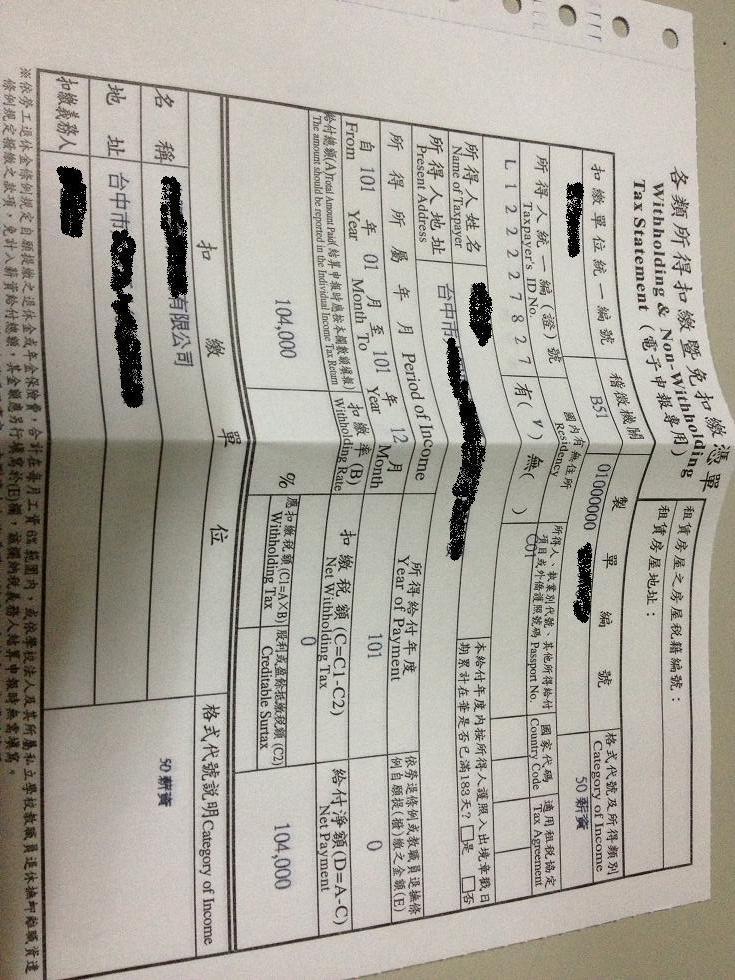 各類所得扣繳暨免扣繳憑單
Withholding & Non-Withholding
Tax Statement (電子申報專用)
租賃房屋之房屋稅籍編號：
租賃房屋地址：
扣繳單位統一編號
稽徵機關
製單編號
格式代號及所得類別
Category of Income
B51
01000000
50 薪資
所得人統一編(證)號
Taxpayer's ID No.
國內有無住所
Residency
所得人、執業別代號、其他所得給付
項目或外僑護照號碼 Passport No.
國家代碼
Country Code
適用租稅協定
Tax Agreement
L122227827
有( V ) 無( )
C01
所得人姓名
Name of Taxpayer
本給付年度內按所得人護照入出境章戳日
期累計在華是否已滿183天？ □是 □否
所得人地址
Present Address
台中市
所得所屬年月 Period of Income
所得給付年度
Year of Payment
依勞退條例或教職員退撫條
例自願提(撥)繳之金額(E)
自 101 年 01 月至 101 年 12 月
From Year Month To Year Month
101
0
給付總額(A)Total Amount Paid(結算申報時應按本欄數額填報)
The amount should be reported in the Individual Income Tax Return
扣繳率(B)
Withholding Rate
扣繳稅額(C=C1-C2)
Net Withholding Tax
給付淨額(D=A-C)
Net Payment
104,000
%
0
104,000
應扣繳稅額(C1=A×B)
Withholding Tax
股利或盈餘抵繳稅額(C2)
Creditable Surtax
扣繳單位
格式代號說明Category of Income
名稱
有限公司
50 薪資
地址
台中市
扣繳義務人
※依勞工退休金條例規定自願提繳之退休金或年金保險費，合計在每月工資6%範圍內，或依學校法人及其所屬私立學校教職員退休撫卹離職資遣
條例規定撥繳之款項，免計入薪資給付總額，其金額應另行填寫於(E)欄，該欄納稅義務人結算申報時無需填寫。